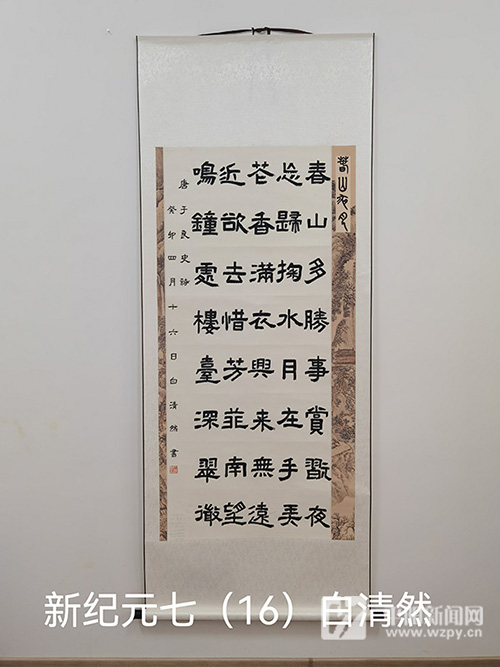 春山夜月
春山多勝事賞翫夜
忘歸掬水月在手弄
花香滿衣興来無遠
近欲去惜芳菲南望
鳴鐘處樓臺深翠微
唐于良史詩
癸卯四月十六日白清然書
新纪元七（16）白清然
新闻网
www.wzpy.cn